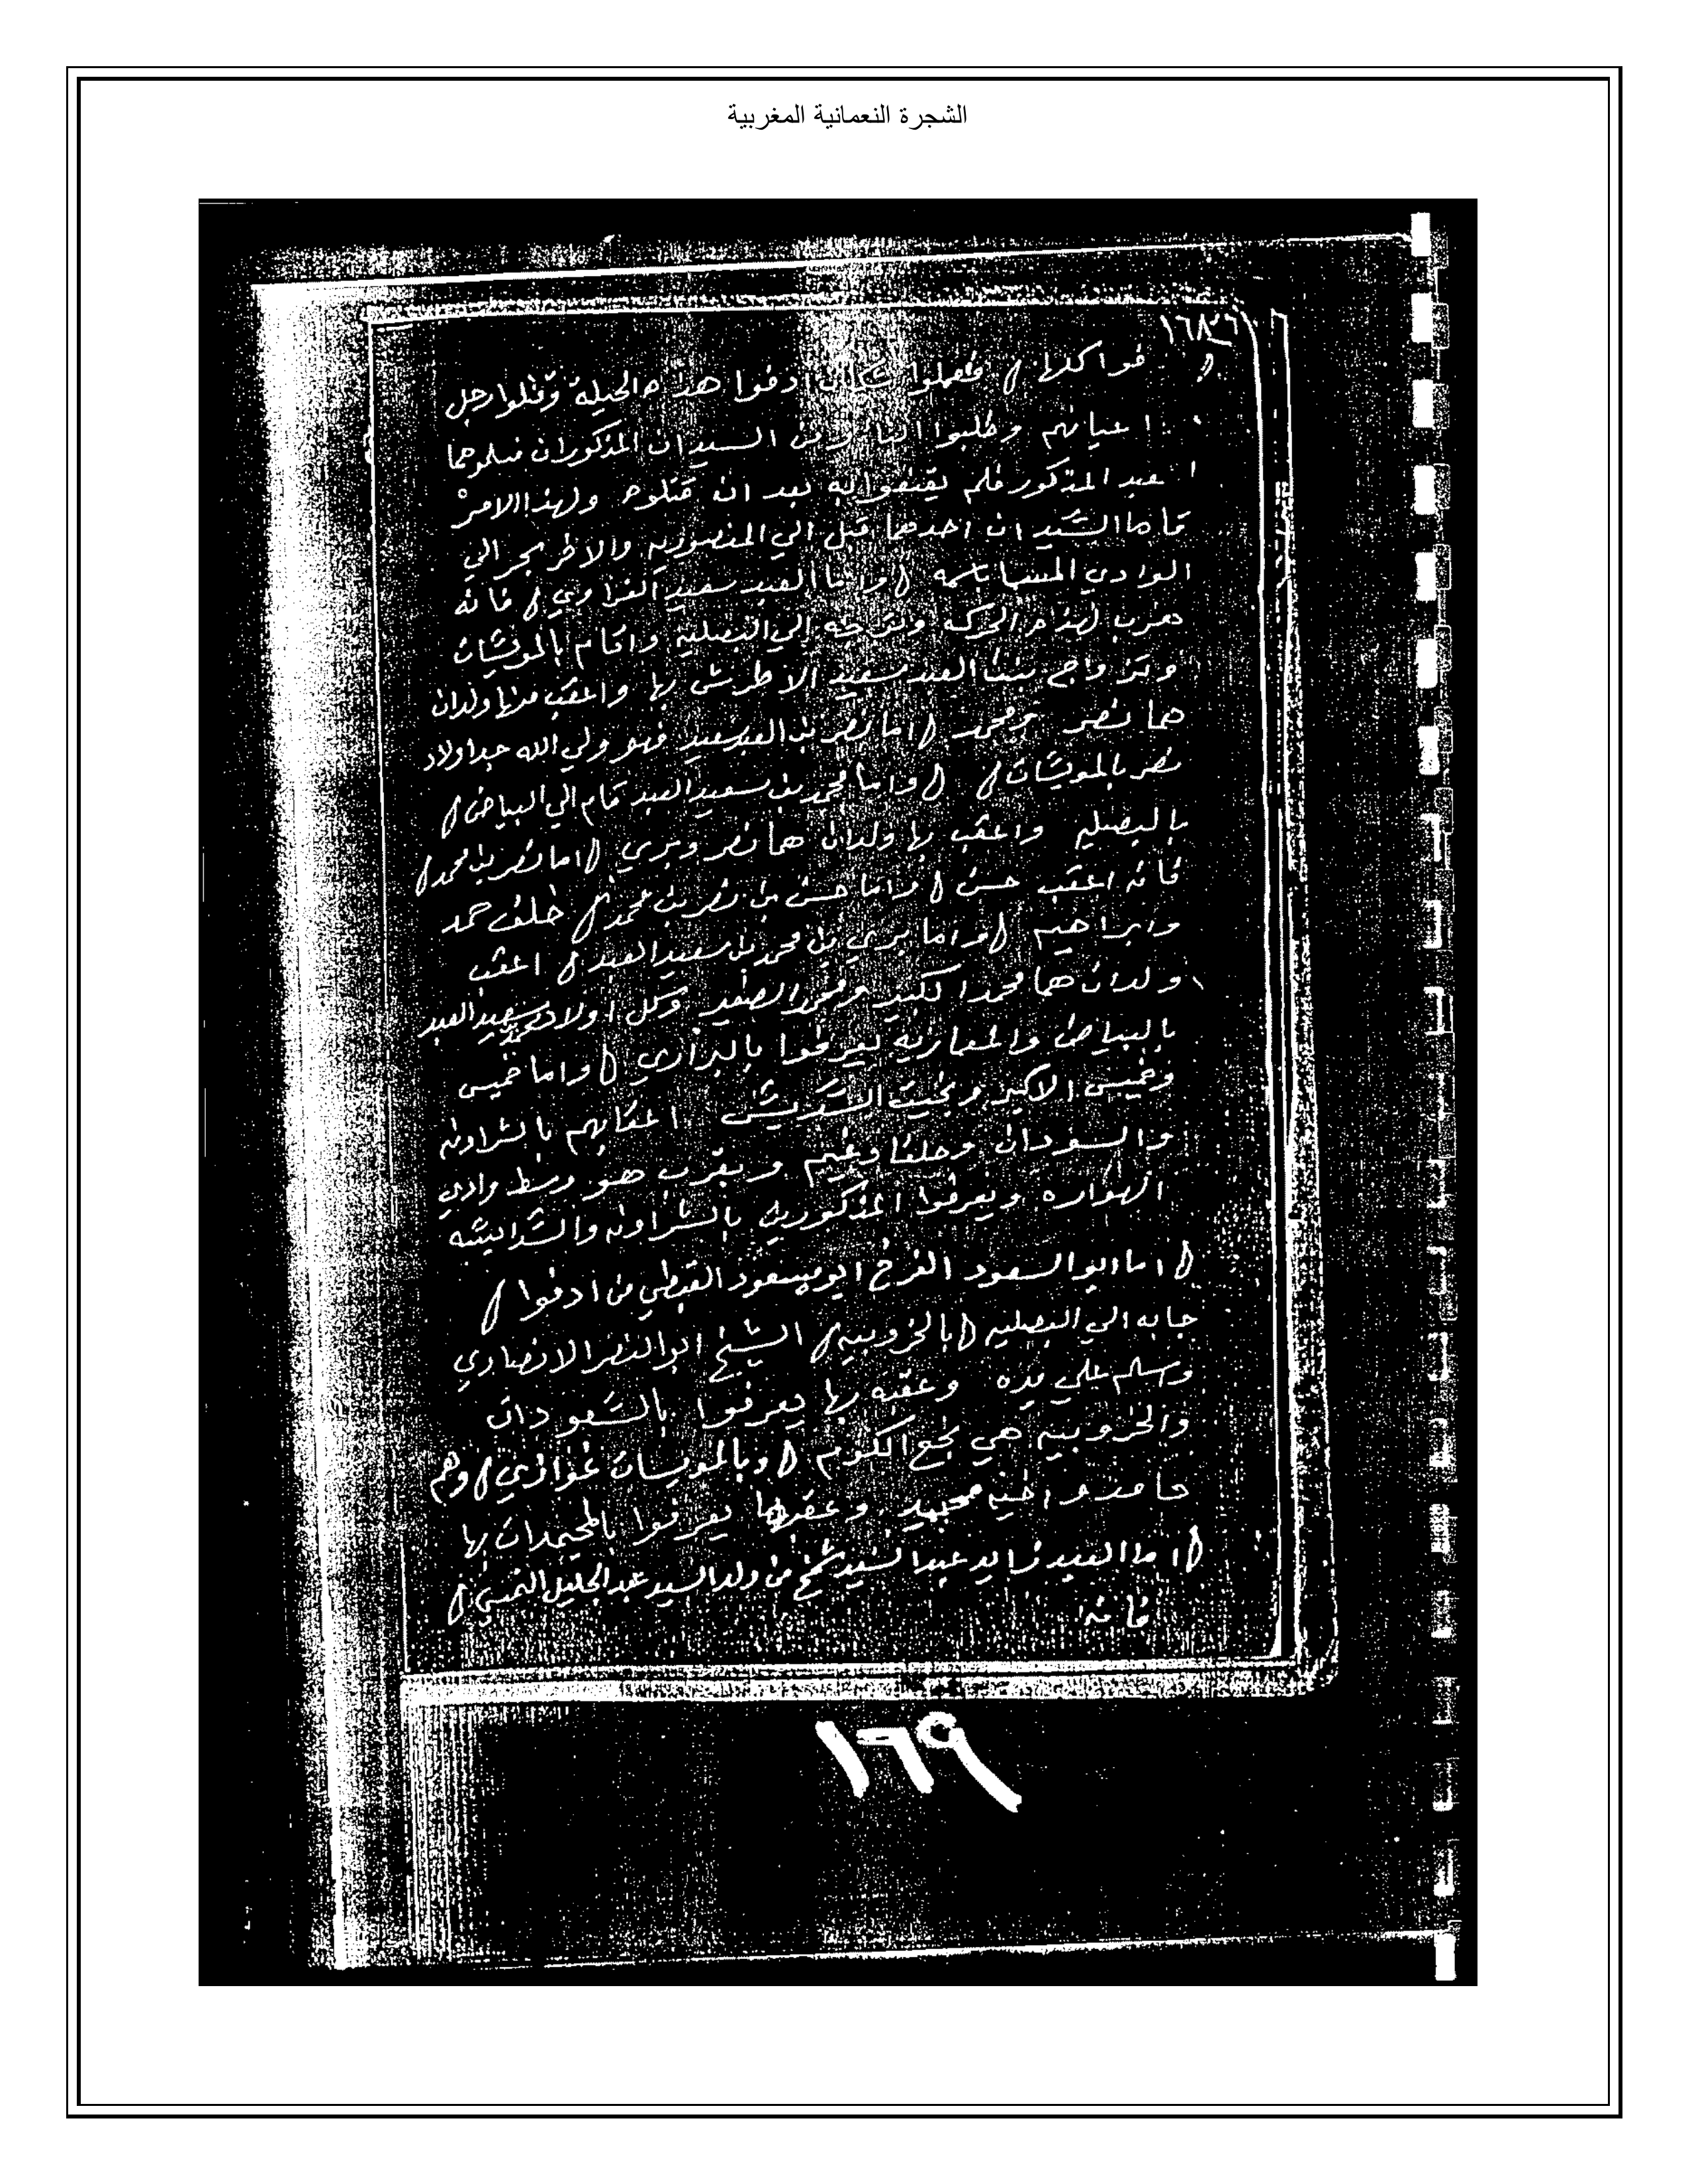 الشجرة النعمانية المغربية
فعملوا سكان ادفوا هذه الحيلة وقتلوا رجل
اعيانهم وطلبوا من السيدان المذكوران فسلموهما
العبد المذكور فلم يقتنعوا به بعد ان قتلوه ولهذا الامر
قاما السيدان احدهما قبل الي المنصوريه والاخر بحر الي
الوادي المسما باسمه () واما العبد سعيد العزاوي () فانه
هرب لهذه الحركه الي البصليه واقام بالمويشات
وتزواج بنت العبد سعيد الاطرش بها واعقب منها ولدان
هما نصر ومحمد () اما نصر بن العبد سعيد فهو ولي الله جد اولاد
نصر بالمويشات () واما محمد بن سعيد العبد قام الي البياض ()
بالبصليه واعقب بها ولدان هما نصر وبري () اما نصر بن محمد ()
فانه اعقب حسن () واما حسن بن نصر بن محمد () خلف حمد
وابراهيم () واما بري بن محمد بن سعيد العبد () اعقب
ولدان هما محمد الكبير ومحمد الصغير وكل اولاد محمد سعيد العبد
بالبياض والمعاريه يعرفوا بالبراري () واما خميس
وخميس الاكبر وبخيت اعقابهم بالشراونه
والسودان وحلفا وغيم وبقرب هو وسط وادي
الهواره ويعرفوا المذكورين بالشراونه
() اما ابو السعود الفرخ ابو مسعود القبطي من ادفوا ()
جابه الي البصليه () بالخروبيه () الشيخ ابو النصر الانصاري
وسلم علي يده وعقبه بها يعرفوا بالسعودات
والخروبيه هي نجع الكوم () وبالمويسات غوازي () وهم
حامد و اخيه محييد وعقبهما يعرفوا بالمحيمدات بها
() اما العبد زايد عبد السيد شيخ من ولد السيد عبد الجليل النمعيي ()
فانه
١٦٩